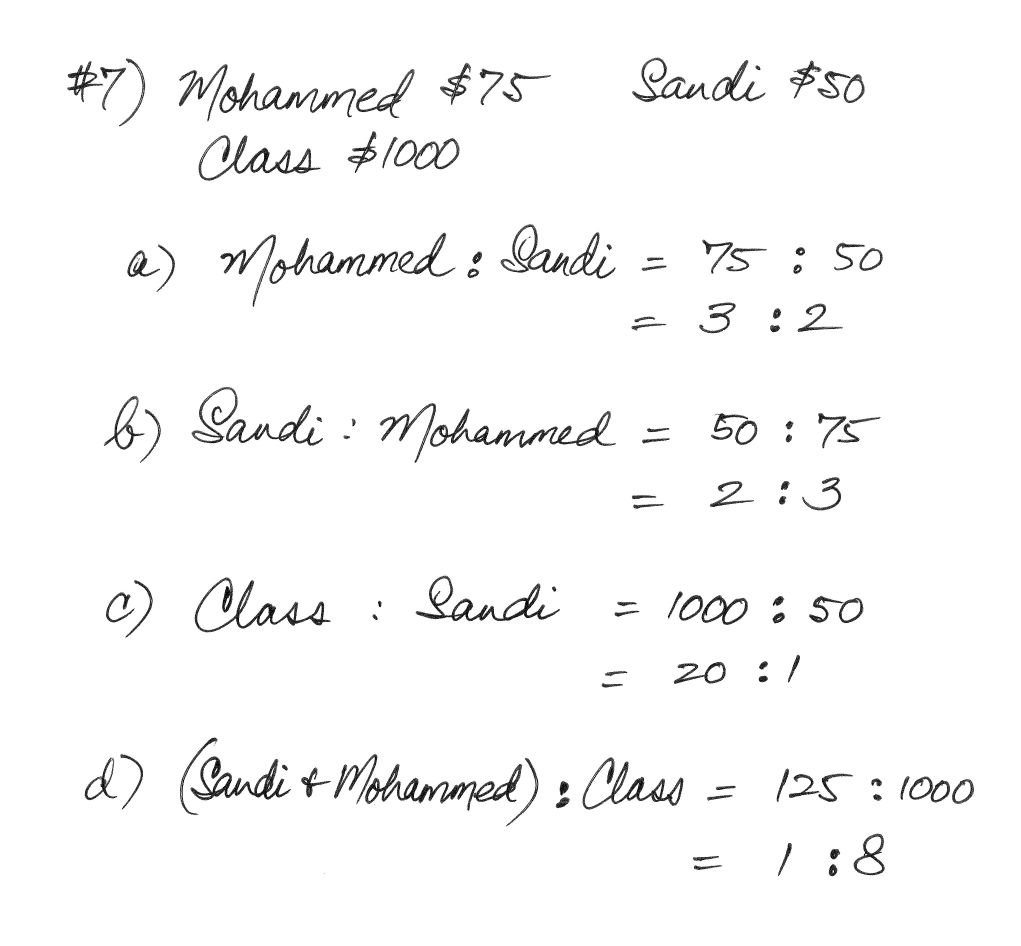 #7) Mohammed $75 Sandi $50
Class $1000
a) Mohammed : Sandi = 75 : 50
= 3 : 2
b) Sandi : Mohammed = 50 : 75
= 2 : 3
c) Class : Sandi = 1000 : 50
= 20 : 1
d) (Sandi + Mohammed) : Class = 125 : 1000
= 1 : 8